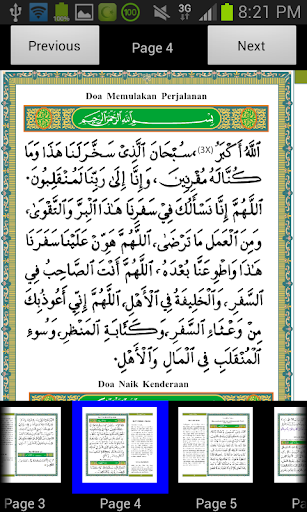 3G 8:21 PM
Previous
Page 4
Next
Doa Memulakan Perjalanan
بِسْمِ اللهِ الرَّحْمٰنِ الرَّحِيْمِ
اَللّٰهُ أَكْبَرُ (3X)، سُبْحَانَ الَّذِيْ سَخَّرَ لَنَا هٰذَا وَمَا
كُنَّا لَهُ مُقْرِنِيْنَ، وَإِنَّا إِلَىٰ رَبِّنَا لَمُنْقَلِبُوْنَ.
اَللّٰهُمَّ إِنَّا نَسْأَلُكَ فِيْ سَفَرِنَا هٰذَا الْبِرَّ وَالتَّقْوَىٰ،
وَمِنَ الْعَمَلِ مَا تَرْضَىٰ، اَللّٰهُمَّ هَوِّنْ عَلَيْنَا سَفَرَنَا
هٰذَا وَاطْوِ عَنَّا بُعْدَهُ، اَللّٰهُمَّ أَنْتَ الصَّاحِبُ فِي
السَّفَرِ، وَالْخَلِيْفَةُ فِي الْأَهْلِ، اَللّٰهُمَّ إِنِّيْ أَعُوْذُ بِكَ
مِنْ وَعْثَاءِ السَّفَرِ، وَكَآبَةِ الْمَنْظَرِ، وَسُوْءِ
الْمُنْقَلَبِ فِي الْمَالِ وَالْأَهْلِ.
Doa Naik Kenderaan
Page 3
Page 4
Page 5
Page